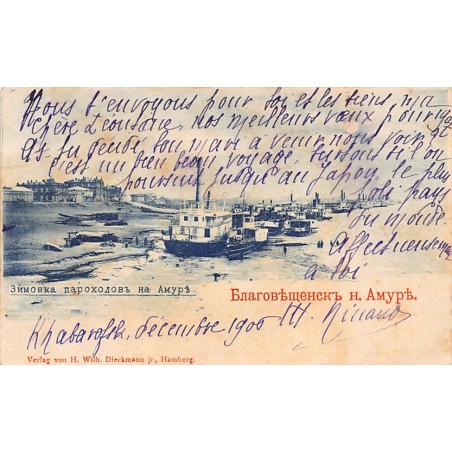 Nous t'envoyons pour toi et les tiens, ma
chère Léontine, nos meilleurs vœux pour
et tu ton mari à venir nous voir
c'est un bien beau voyage, surtout si l'on
pousse jusqu'au Japon, le plus
joli pays
du monde.
Affectueusement
à toi
Зимовка пароходовъ на Амурѣ.
Благовѣщенскъ н. Амурѣ.
Khabarofsk, décembre 1900 M.
Verlag von H. Wilh. Dieckmann jr., Hamburg.